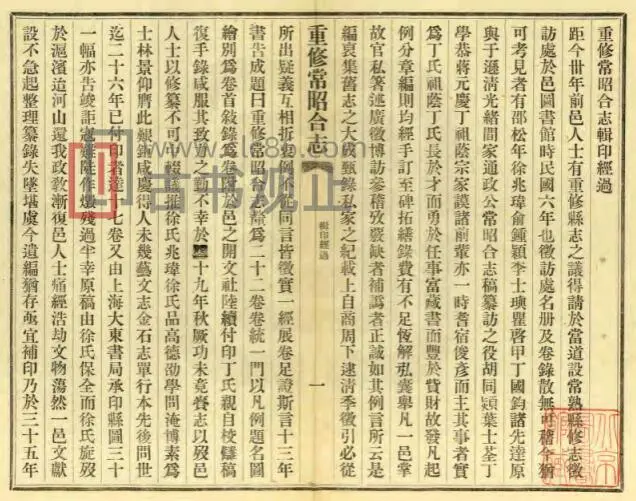 重修常昭合志輯印經過
距今卅年前邑人士有重修縣志之議得請於當道設常熟縣修志徵
訪處於邑圖書館時民國六年也徵訪處名册及卷錄散無可稽今猶
可考見者有邵松年徐兆瑋俞鍾穎李士瓚瞿啓甲丁國鈞諸先達原
與于遜清光緒間家通政公常昭合志稿纂訪之役胡同穎葉士荃丁
學恭蔣元慶丁祖蔭宗家謨諸前輩亦一時耆宿俊彥而主其事者實
爲丁氏祖蔭丁氏長於才而勇於任事富藏書而豐於貲財故發凡起
例分章編則均經手訂至碑拓繕錄費有不足恆解弘囊舉凡一邑掌
故官私箸述廣徵博訪參稽攷覈缺者補譌者正誠如其例言所云是
編裒集舊志之大成甄錄私家之紀載上自商周下逮清季徵引必從
重修常昭合志
輯印經過
一
所出疑義互相折衷不從同言皆徵實一經展卷足證斯言十三年
書告成題曰重修常昭合志都爲二十二卷卷統一門以凡例題名圖
繪別爲卷首敍錄爲卷附於邑之開文社陸續付印丁氏親自校讎稿
復手錄咸服其致力之勤不幸於十九年秋厥功未竟賫志以歿邑
人士以修纂不可中輟羣推徐氏兆瑋徐氏品高德劭學問淹博素爲
士林景仰膺此艱鉅咸慶得人未幾藝文志金石志單行本先後問世
迄二十六年已付印者達十七卷又由上海大東書局承印縣圖三十
一幅亦告竣詎寇難陡作燬殘過半幸原稿由徐氏保全而徐氏旋歿
於滬濱迨河山還我政教漸復邑人士痛經浩劫文物蕩然一邑文獻
設不急起整理纂錄失墜堪虞今遺編猶存亟宜補印乃於三十五年